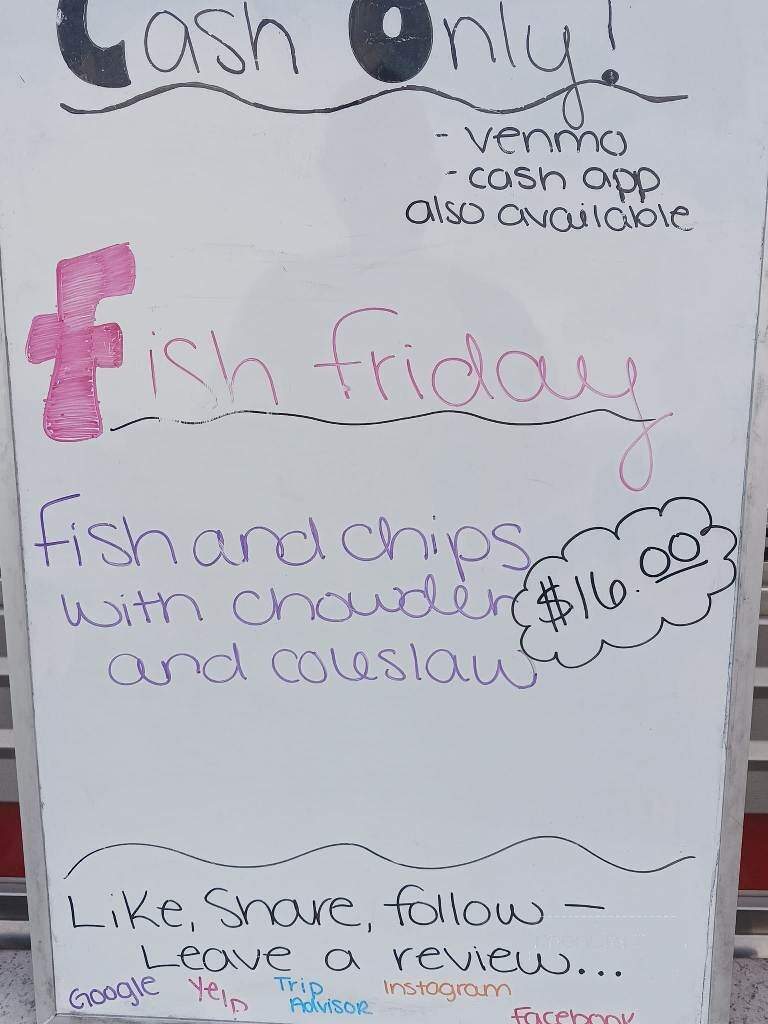 Cash Only!
- venmo
- cash app
also available
Fish friday
Fish and chips
with chowder $16.00
and coleslaw
Like, Share, follow -
Leave a review...
Google Yelp Trip Advisor Instagram
Facebook